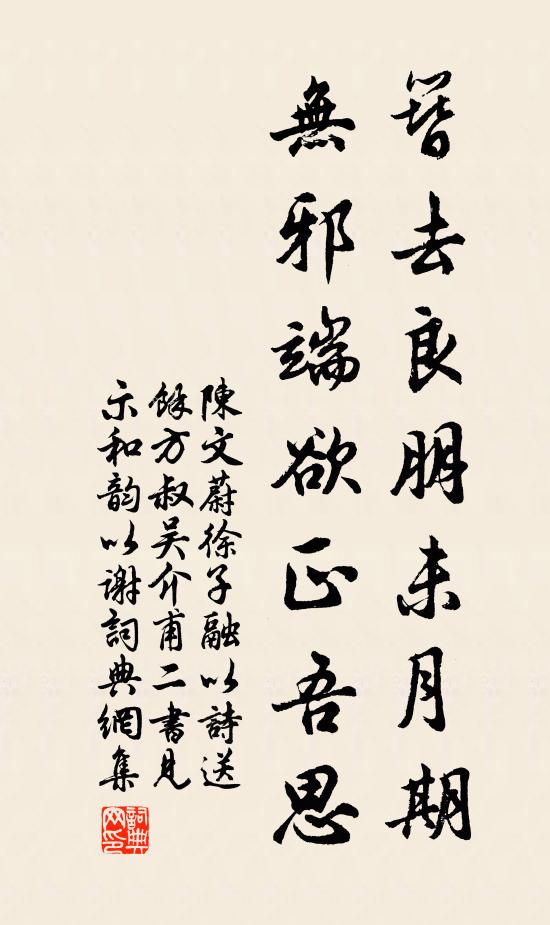 簪去良朋未月期
無邪端欲正吾思
陳文蔚徐子融以詩送
餘方叔吴介甫二書見
示和韵以謝詞典網集
詞典網印